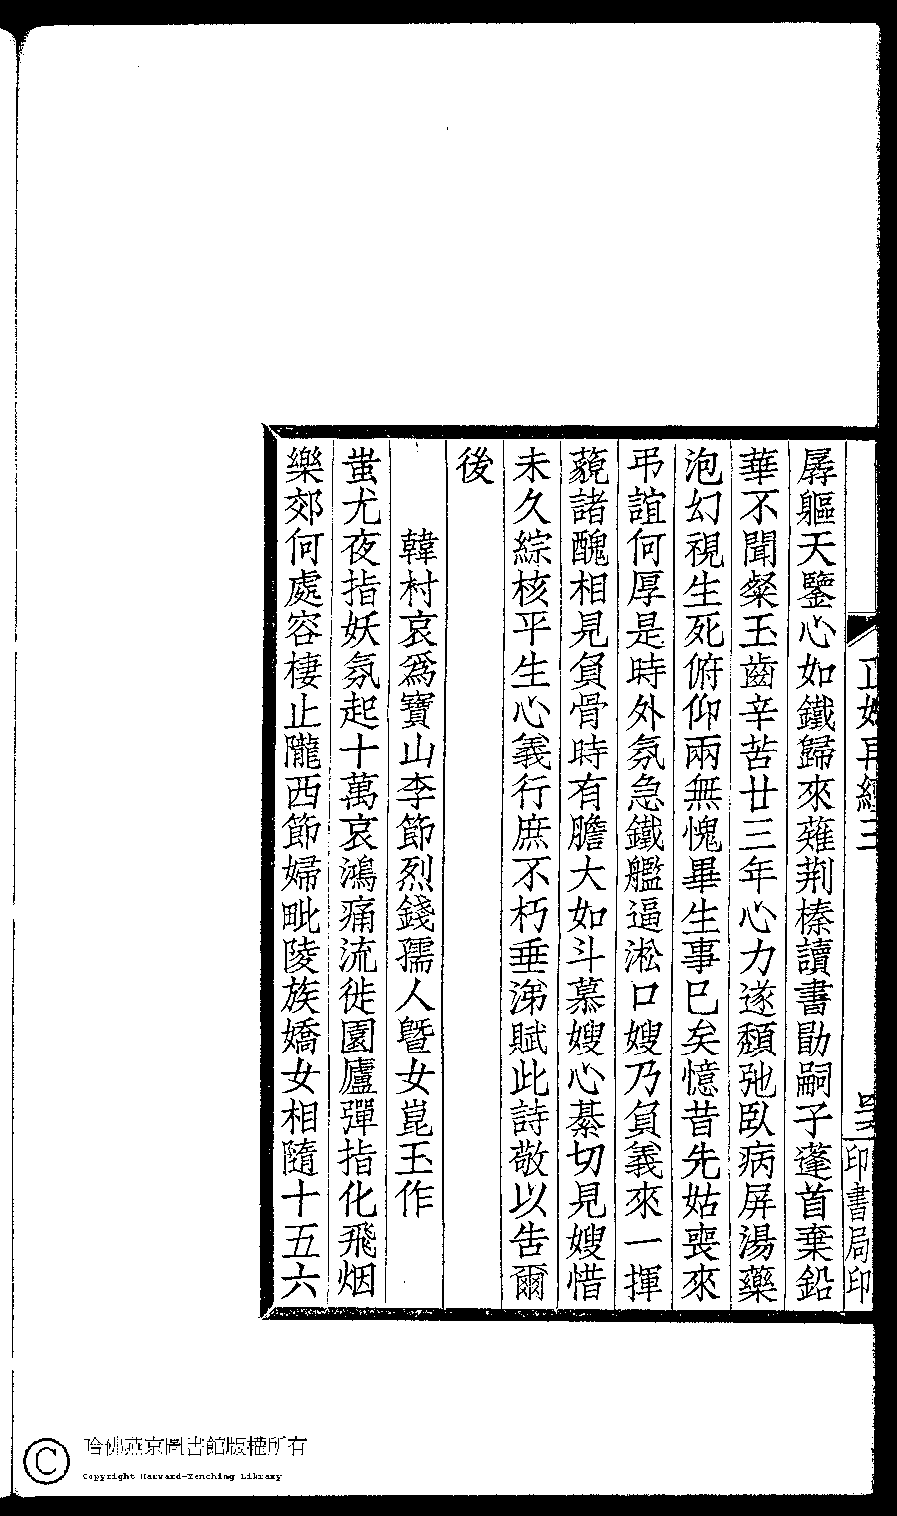 孱軀天鑒心如鐵歸來薙荆榛讀書勖嗣子蓬首棄鉛
華不聞粲玉齒辛苦廿三年心力遂頹弛臥病屏湯藥
泡幻視生死俯仰兩無愧畢生事已矣憶昔先姑喪來
弔誼何厚是時外氛急鐵艦逼淞口嫂乃負義來一揮
藐諸醜相見負骨時有膽大如斗慕嫂心綦切見嫂惜
未久綜核平生心義行庶不朽垂涕賦此詩敬以告爾
後
韓村哀爲寶山李節烈錢孺人曁女崑玉作
蚩尤夜指妖氛起十萬哀鴻痛流徙園廬彈指化飛烟
樂郊何處容棲止隴西節婦毗陵族嬌女相隨十五六
印書局印
哈佛燕京圖書館版權所有
Copyright Harvard-Yenching Library